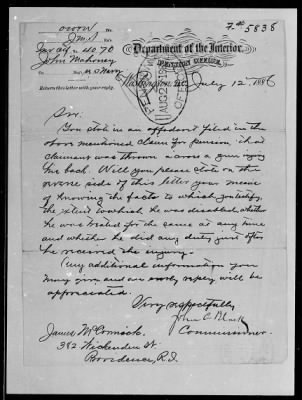 7.# 5838
Department of the Interior,
PENSION OFFICE,
No. 70
John Mahoney
U S Navy
Return this letter with your reply.
Washington, D.C. July 12th 1886
Sir:
You state in an affidavit filed in the
above mentioned claim for pension, that
claimant was thrown across a gun injuring
his back. Will you please state on the
reverse side of this letter your means
of knowing the facts to which you testify,
the extent to which he was disabled, whether
he was treated for the same at any time
and whether he did any duty just after
he received the injury.
Any additional information you
may give and an early reply will be
appreciated.
Very respectfully,
John C Black
Commissioner.
James McCormick
392 Wickenden St
Providence, R.I.